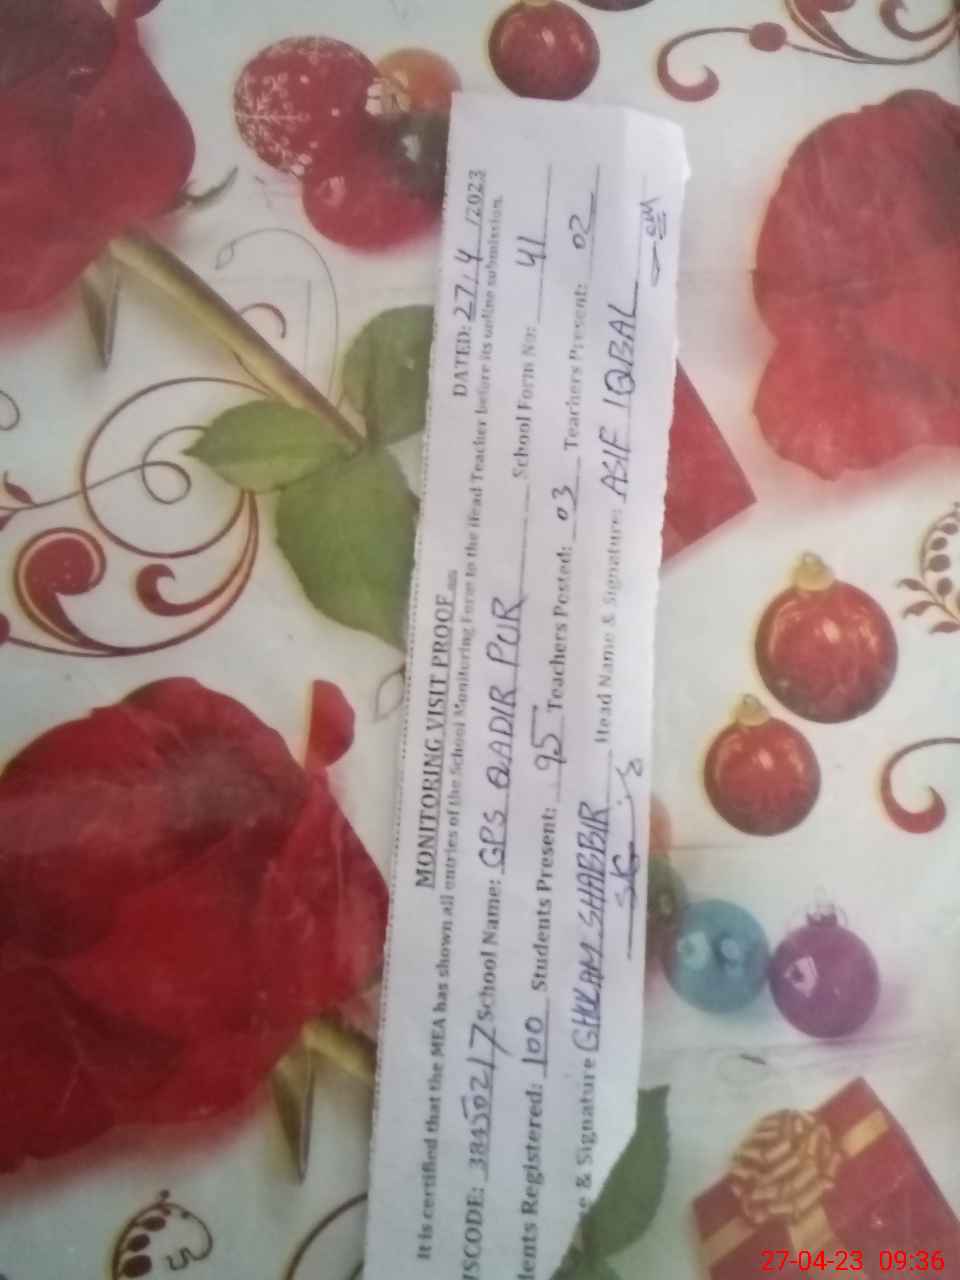 MONITORING VISIT PROOF DATED: 27/4/2023
It is certified that the MEA has shown all entries of the School Monitoring Form to the Head Teacher before its online submission.
ISCODE: 38450217 School Name: GPS QADIR PUR School Form No: 41
dents Registered: 100 Students Present: 95 Teachers Posted: 03 Teachers Present: 02
e & Signature GHULAM SHABBIR Head Name & Signature: ASIF IQBAL
27-04-23 09:36